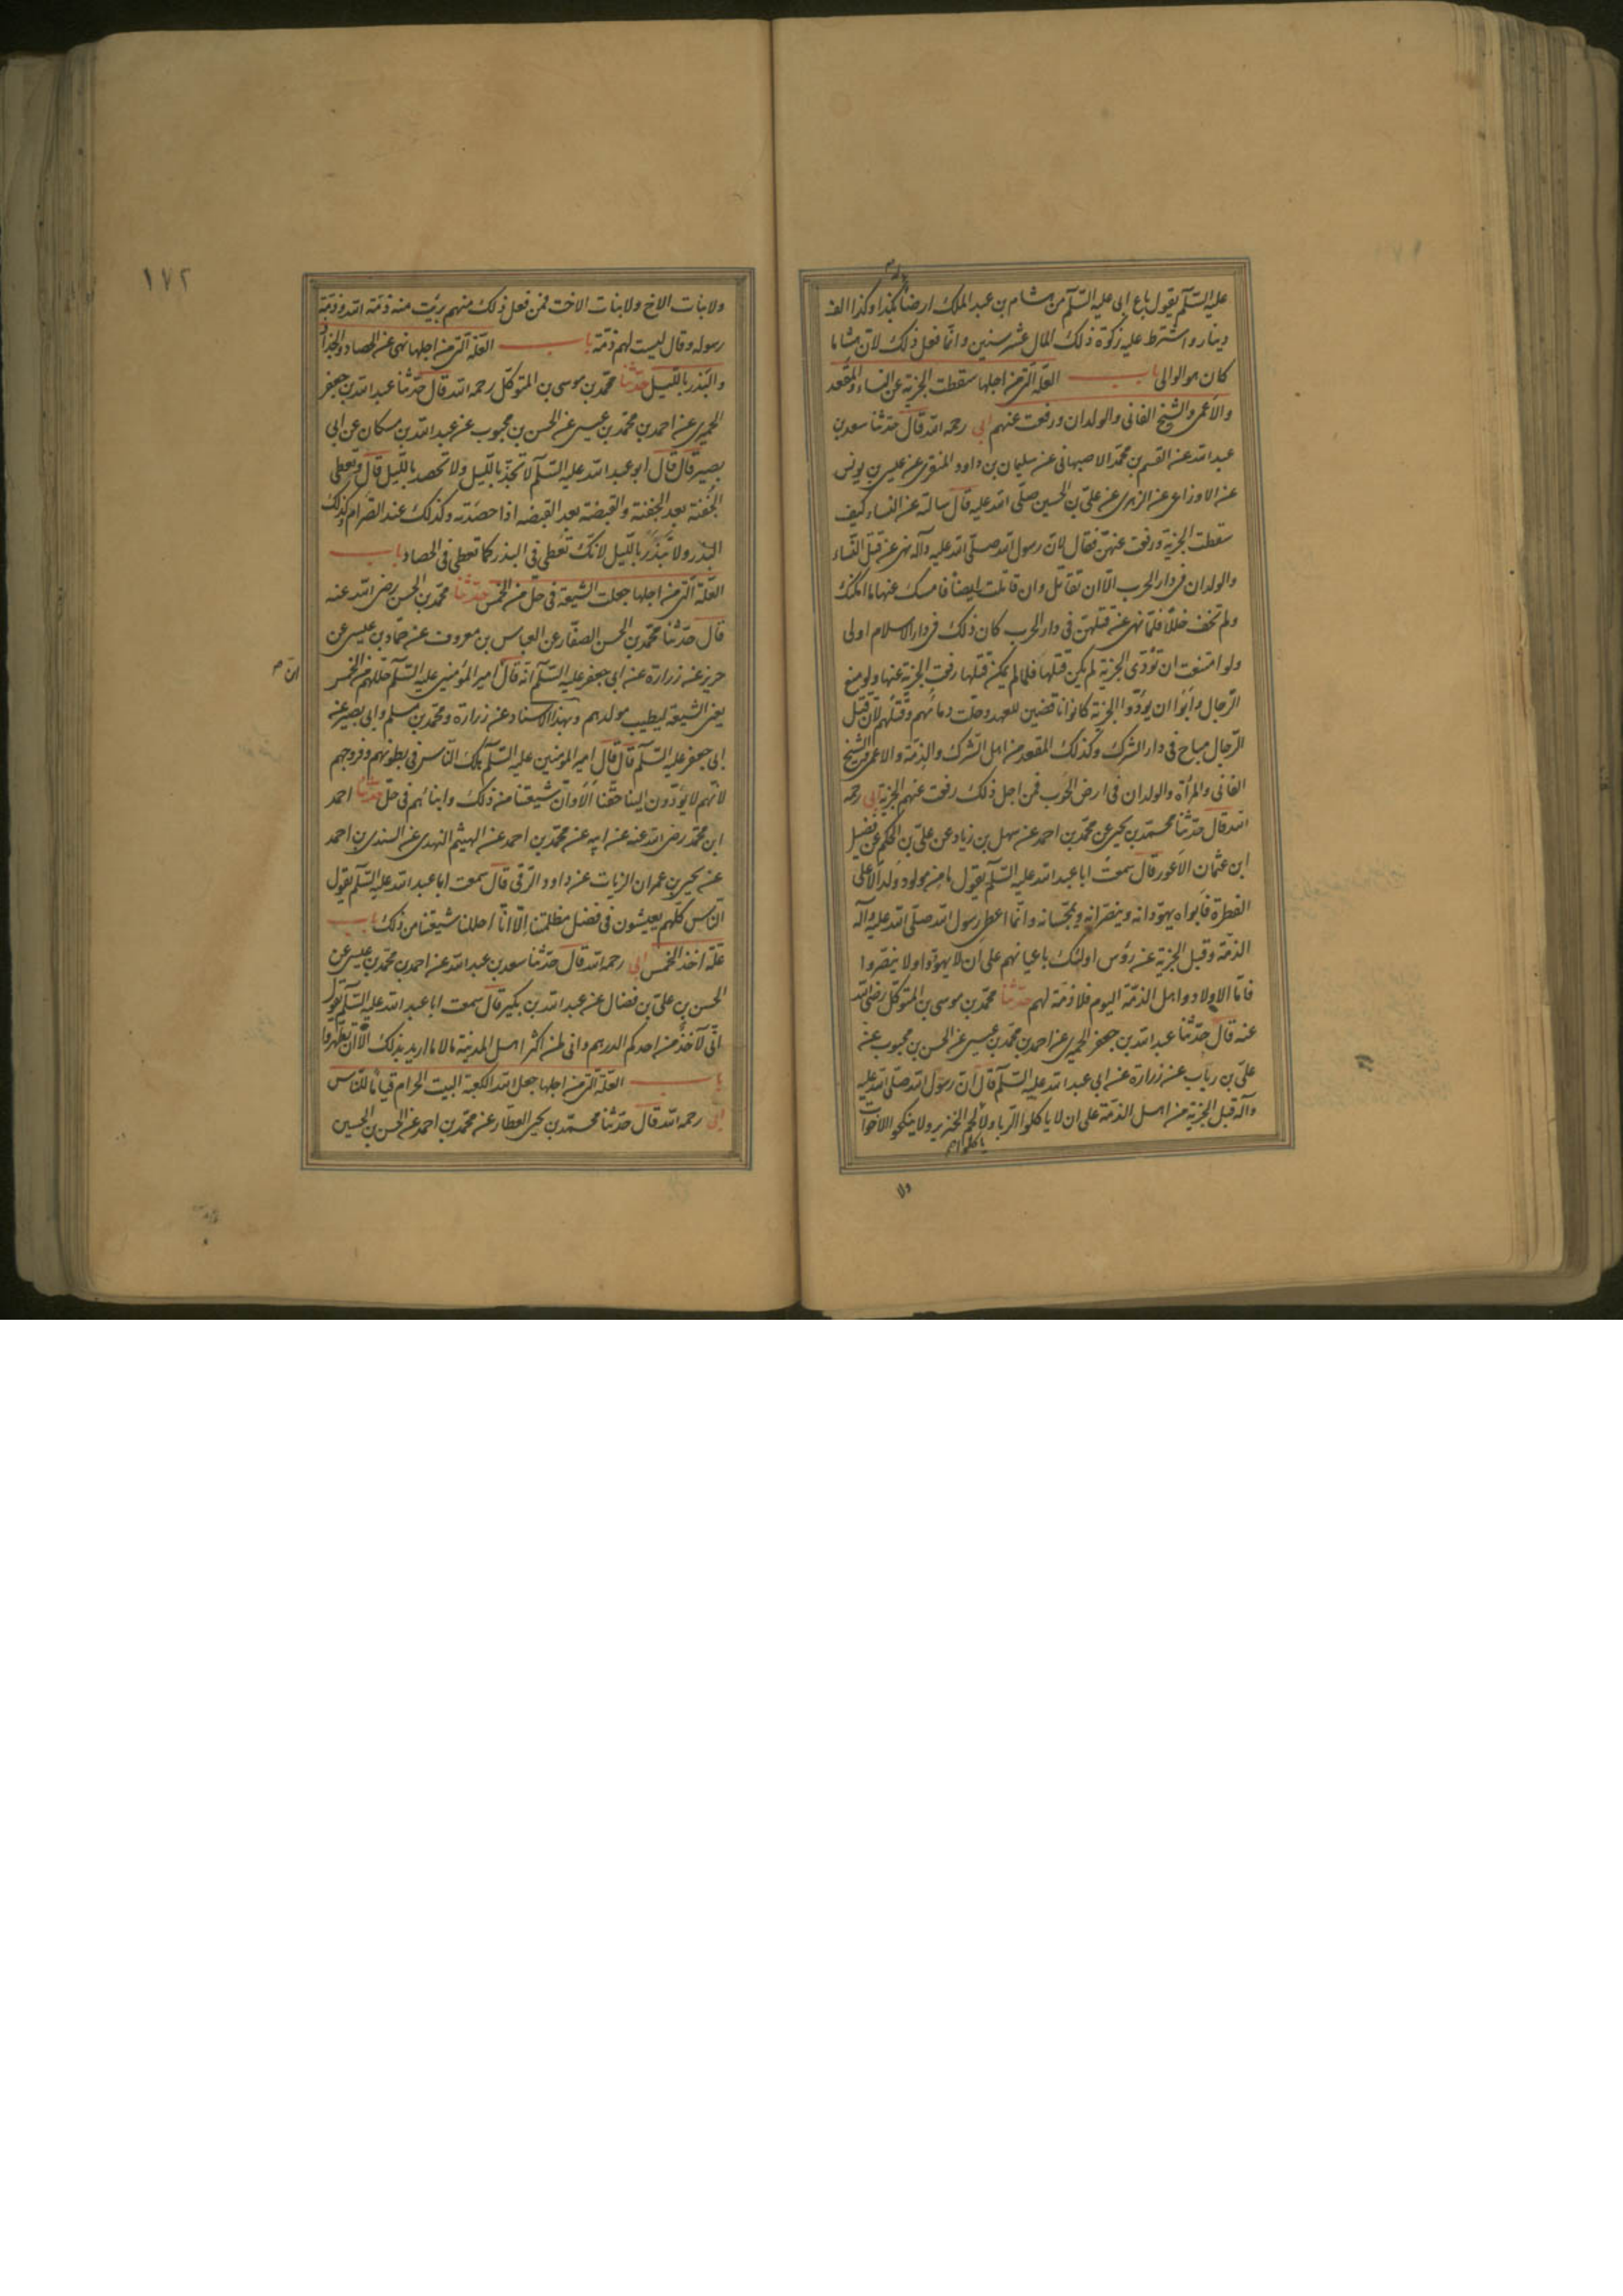 عليه السّلم يقول باع ابى عليه السّلم من هشام بن عبد الملك ارضا بكذا وكذا الف
دينار واشترط عليه زكوة ذلك المال عشر سنين وانّما فعل ذلك لانّ هشاما
كان هو الوالى باب العلّة التى من اجلها سقطت الجزية عن النساء والمقعد
والاعمى والشيخ الفانى والولدان ورفعت عنهم ابى رحمه الله قال حدّثنا سعد بن
عبد الله عن القسم بن محمّد الاصبهانى عن سليمان بن داود المنقرى عن عيسى بن يونس
عن الاوزاعى عن الزهرى عن علىّ بن الحسين صلّى الله عليه قال سالته عن النساء كيف
سقطت الجزية ورفعت عنهنّ فقال لانّ رسول الله صلّى الله عليه وآله نهى عن قتل النّساء
والولدان فى دار الحرب الّا ان تقاتل وان قاتلت ايضاً فامسك عنها ما امكنك
ولم تخف خللاً فلمّا نهى عن قتلهنّ فى دار الحرب كان ذلك فى دار الاسلام اولى
ولو امتنعت ان تؤدّى الجزية لم يكن قتلها فلمّا لم يمكن قتلها رفعت الجزية عنها ولو منع
الرّجال وابوا ان يؤدّوا الجزية كانوا ناقضين للعهد وحلت دماؤهم وقتلهم لانّ قتل
الرّجال مباح فى دار الشرك وكذلك المقعد من اهل الشرك والذمّة والاعمى والشيخ
الفانى والمرأة والولدان فى ارض الحرب فمن اجل ذلك رفعت عنهم الجزية ابى رحمه
الله قال حدّثنا محمّد بن يحيى عن محمّد بن احمد عن سهل بن زياد عن علىّ بن الحكم عن فضيل
ابن عثمان الاعور قال سمعت ابا عبد الله عليه السّلم يقول ما من مولود ولد الّا على
الفطرة فابواه يهوّدانه وينصّرانه ويمجّسانه وانّما اعطى رسول الله صلّى الله عليه وآله
الذمّة وقبل الجزية عن رؤس اولئك باعيانهم على ان لا يهوّدوا ولا ينصّروا
فامّا الاولاد واهل الذمّة اليوم فلا ذمّة لهم حدّثنا محمّد بن موسى بن المتوكّل رضى الله
عنه قال حدّثنا عبد الله بن جعفر الحميرى عن احمد بن محمّد بن عيسى عن الحسن بن محبوب عن
علىّ بن رباب عن زرارة عن ابى عبد الله عليه السّلم قال انّ رسول الله صلّى الله عليه
وآله قبل الجزية من اهل الذمّة على ان لا ياكلوا الربا ولا لحم الخنزير ولا ينكحوا الاخوات
ياكلوا
ولا
١٧٢
ولا بنات الاخ ولا بنات الاخت فمن فعل ذلك منهم برئت منه ذمّة الله وذمّة
رسوله وقال ليست لهم ذمّة باب العلّة التى من اجلها نهى عن الحصاد والجذاذ
والبذر بالليل حدّثنا محمّد بن موسى بن المتوكّل رحمه الله قال حدّثنا عبد الله بن جعفر
الحميرى عن احمد بن محمّد بن عيسى عن الحسن بن محبوب عن عبد الله بن مسكان عن ابى
بصير قال قال ابو عبد الله عليه السّلم لا تجذّ بالليل ولا تحصد بالليل قال وتعطى
الحفنة بعد الحفنة والقبضة بعد القبضه اذا حصدته وكذلك عند الصرام وكذلك
البذر ولا تبذر بالليل لانّك تعطى فى البذر كما تعطى فى الحصاد باب
العلّة التى من اجلها جعلت الشيعة فى حلّ من الخمس حدّثنا محمّد بن الحسن رضى الله عنه
قال حدّثنا محمّد بن الحسن الصفّار عن العباس بن معروف عن حمّاد بن عيسى عن
حريز عن زرارة عن ابى جعفر عليه السّلم انّه قال امير المؤمنين عليه السّلم حلّلهم من الخمس
يعنى الشيعة ليطيب مولدهم وبهذا الاسناد عن زرارة ومحمّد بن مسلم وابى بصير عن
ابى جعفر عليه السّلم قال قال امير المؤمنين عليه السّلم هلك النّاس فى بطونهم وفروجهم
لانّهم لا يؤدّون الينا حقّنا الا وانّ شيعتنا من ذلك وابنائهم فى حلّ حدّثنا احمد
ابن محمّد رضى الله عنه عن ابيه عن محمّد بن احمد عن الهيثم النهدى عن السندى بن احمد
عن يحيى بن عمران الزيات عن داود الرّقى قال سمعت ابا عبد الله عليه السّلم يقول
النّاس كلّهم يعيشون فى فضل مظلمتنا الّا انّا احللنا شيعتنا من ذلك باب
علّة اخذ الخمس ابى رحمه الله قال حدّثنا سعد بن عبد الله عن احمد بن محمّد بن عيسى عن
الحسن بن علىّ بن فضال عن عبد الله بن بكير قال سمعت ابا عبد الله عليه السّلم يقول
انّى لآخذ من احدكم الدرهم وانى لمن اكثر اهل المدينة مالا ما اريد بذلك الّا ان تطهروا
باب العلّة التى من اجلها جعل الله الكعبة البيت الحرام قياماً للنّاس
ابى رحمه الله قال حدّثنا محمّد بن يحيى العطّار عن محمّد بن احمد عن الحسن بن الحسين